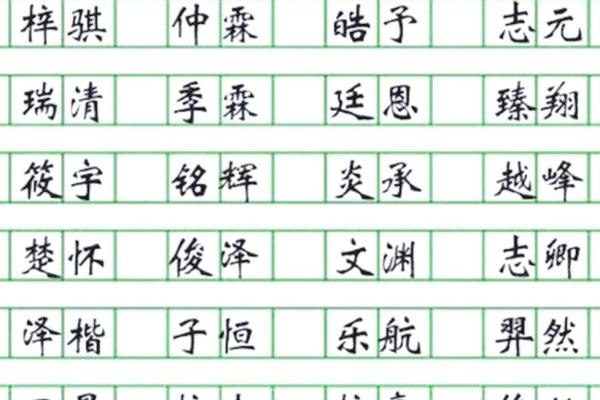 梓骐 仲霖 皓予 志元
瑞清 季霖 廷恩 臻翔
筱宇 铭辉 炎承 越峰
楚怀 俊泽 文渊 志卿
泽楷 子恒 乐航 羿然